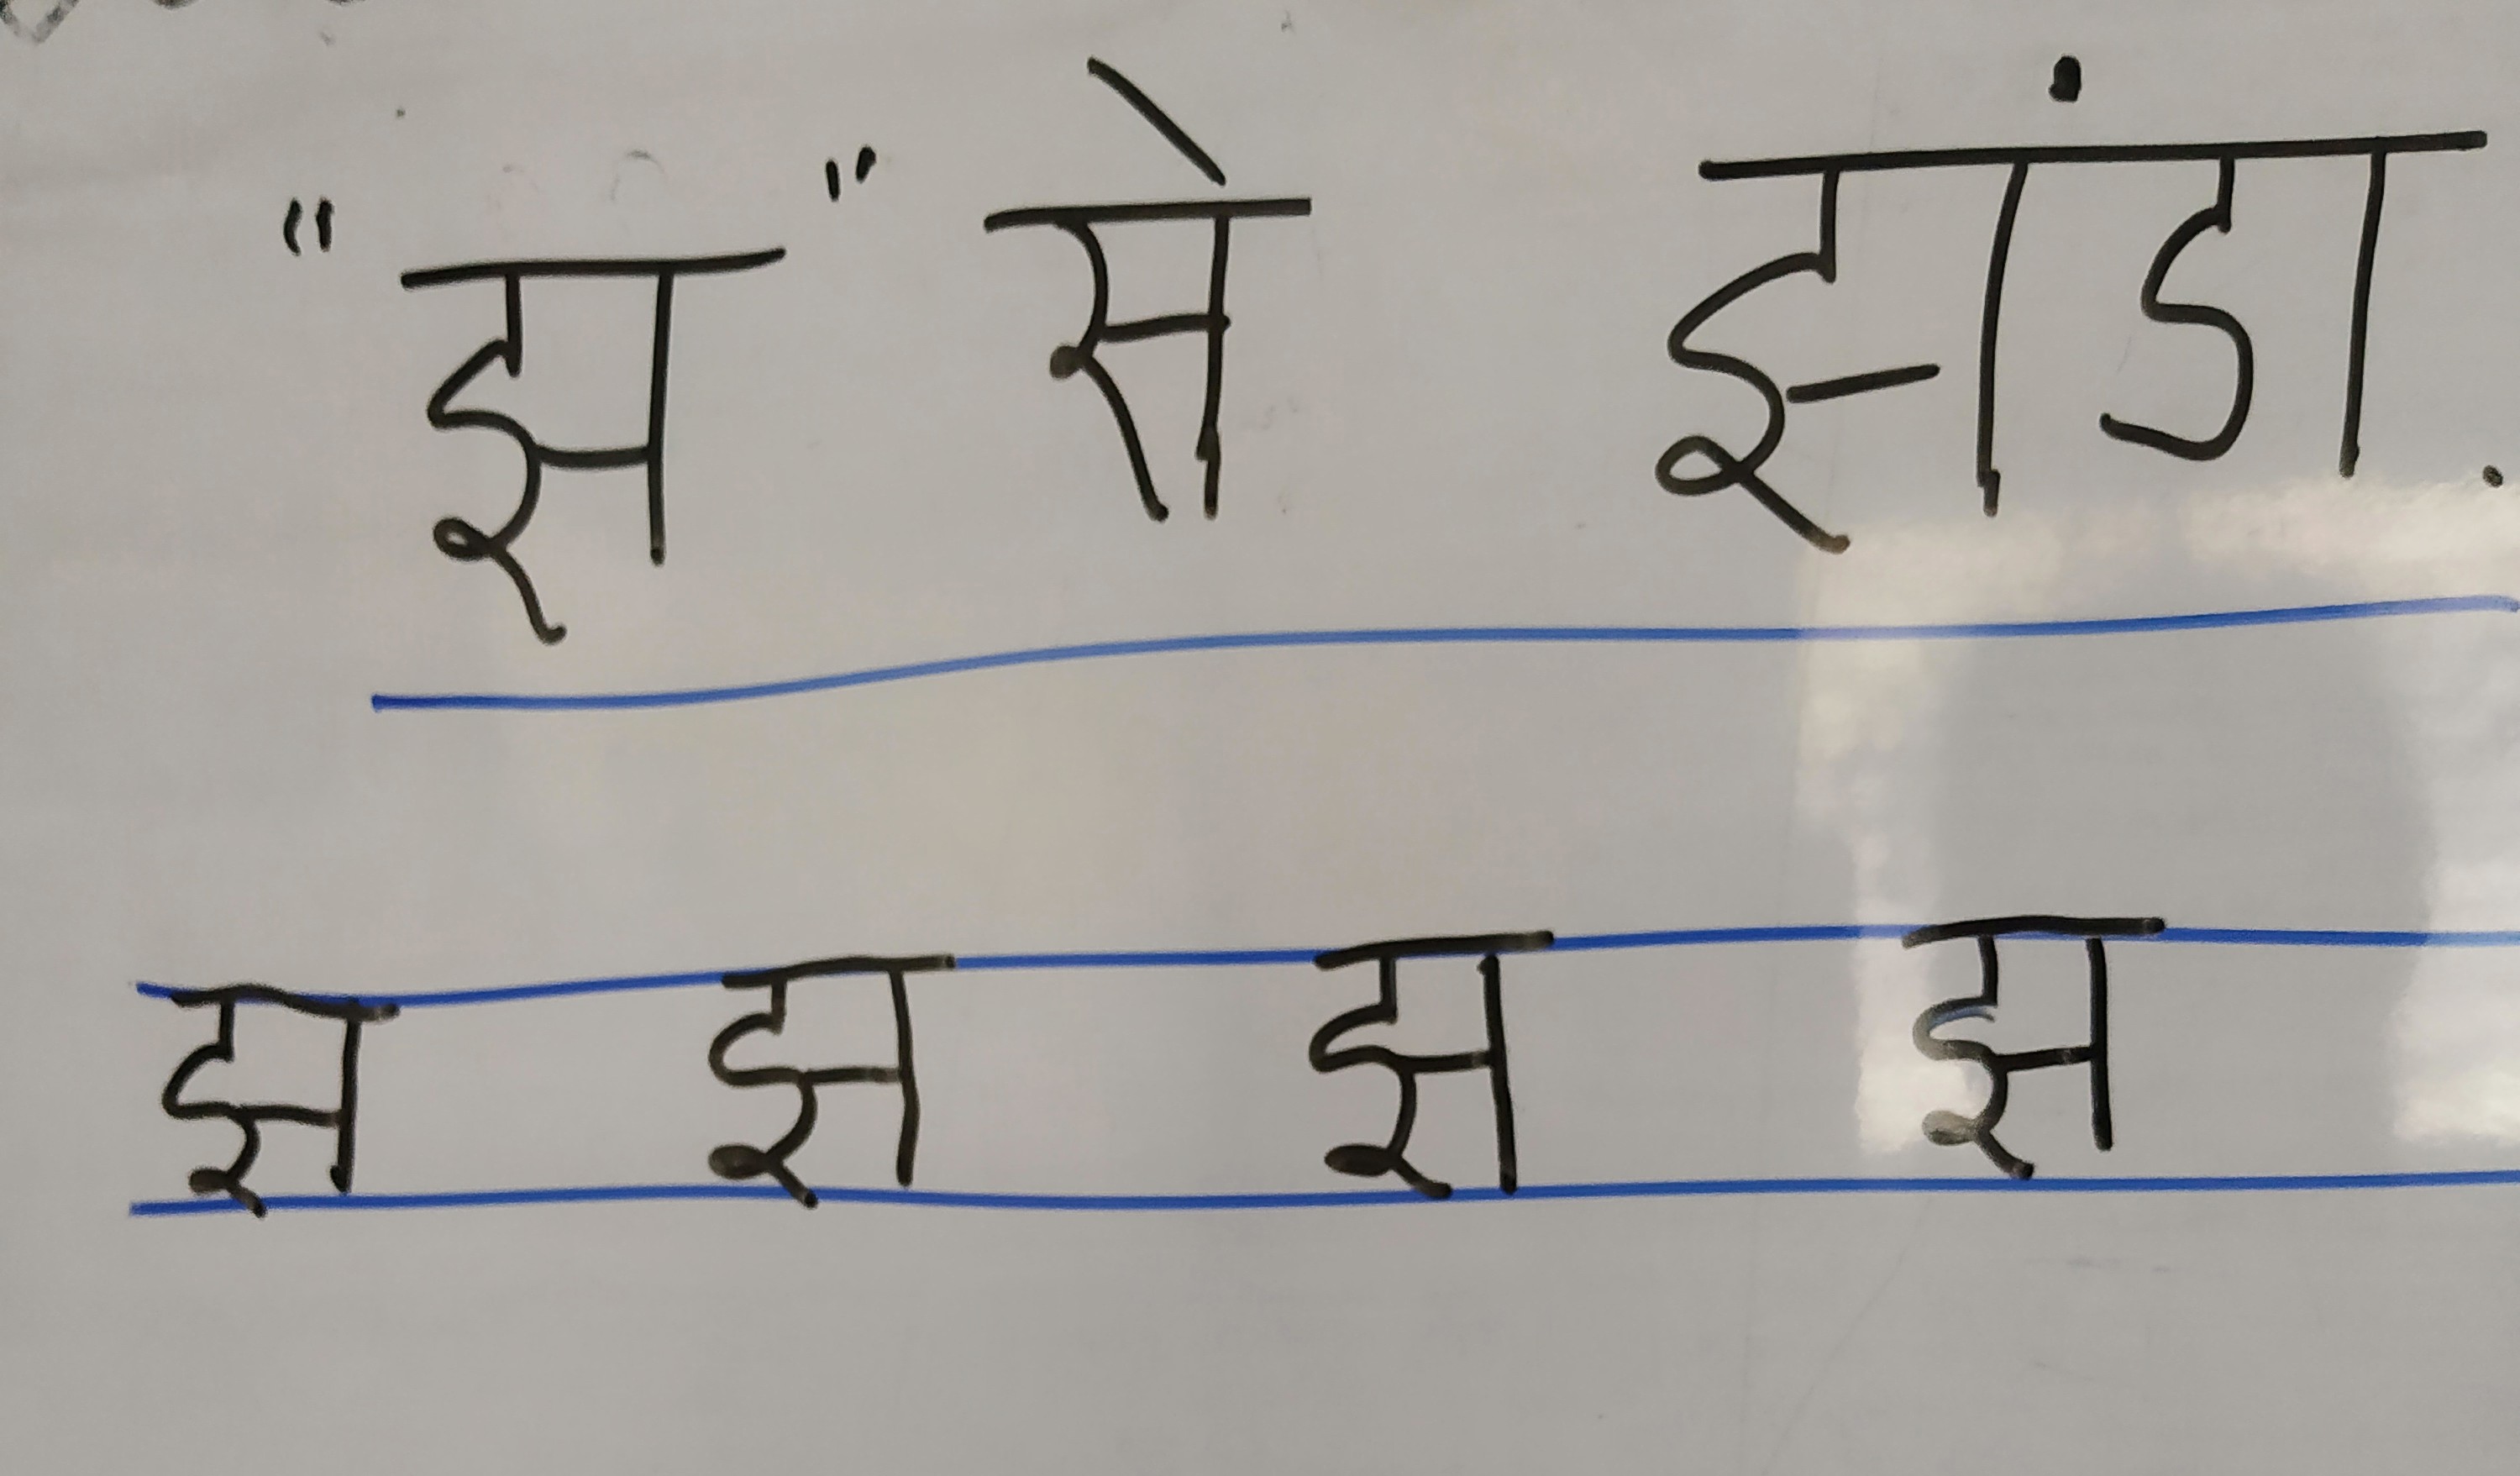 "झ" से झंडा.
झ झ झ झ